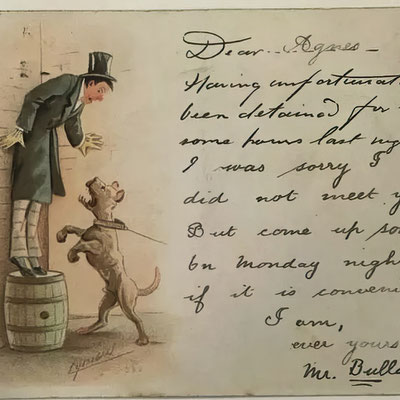 Dear Agnes -
Having unfortunat
been detained for
some hours last nig
I was sorry I
did not meet y
But come up so
on Monday nigh
if it is conveni
I am,
ever yours
Mr. Bulle